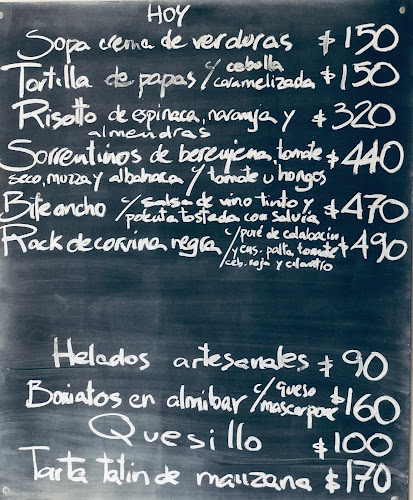 HOY
Sopa crema de verduras $150
Tortilla de papas c/ cebolla caramelizada $150
Risotto de espinaca, naranja y $320
almendras
Sorrentinos de berenjena, tomate $440
seco, muzza y albahaca c/ tomate u hongos
Bife ancho c/ salsa de vino tinto y $470
polenta tostada con salvia
Rack de corvina negra c/ puré de calabacín $490
y ens. palta, tomate
ceb. roja y cilantro
Helados artesanales $90
Boniatos en almíbar c/ queso mascarpone $160
Quesillo $100
Tarta tatin de manzana $170